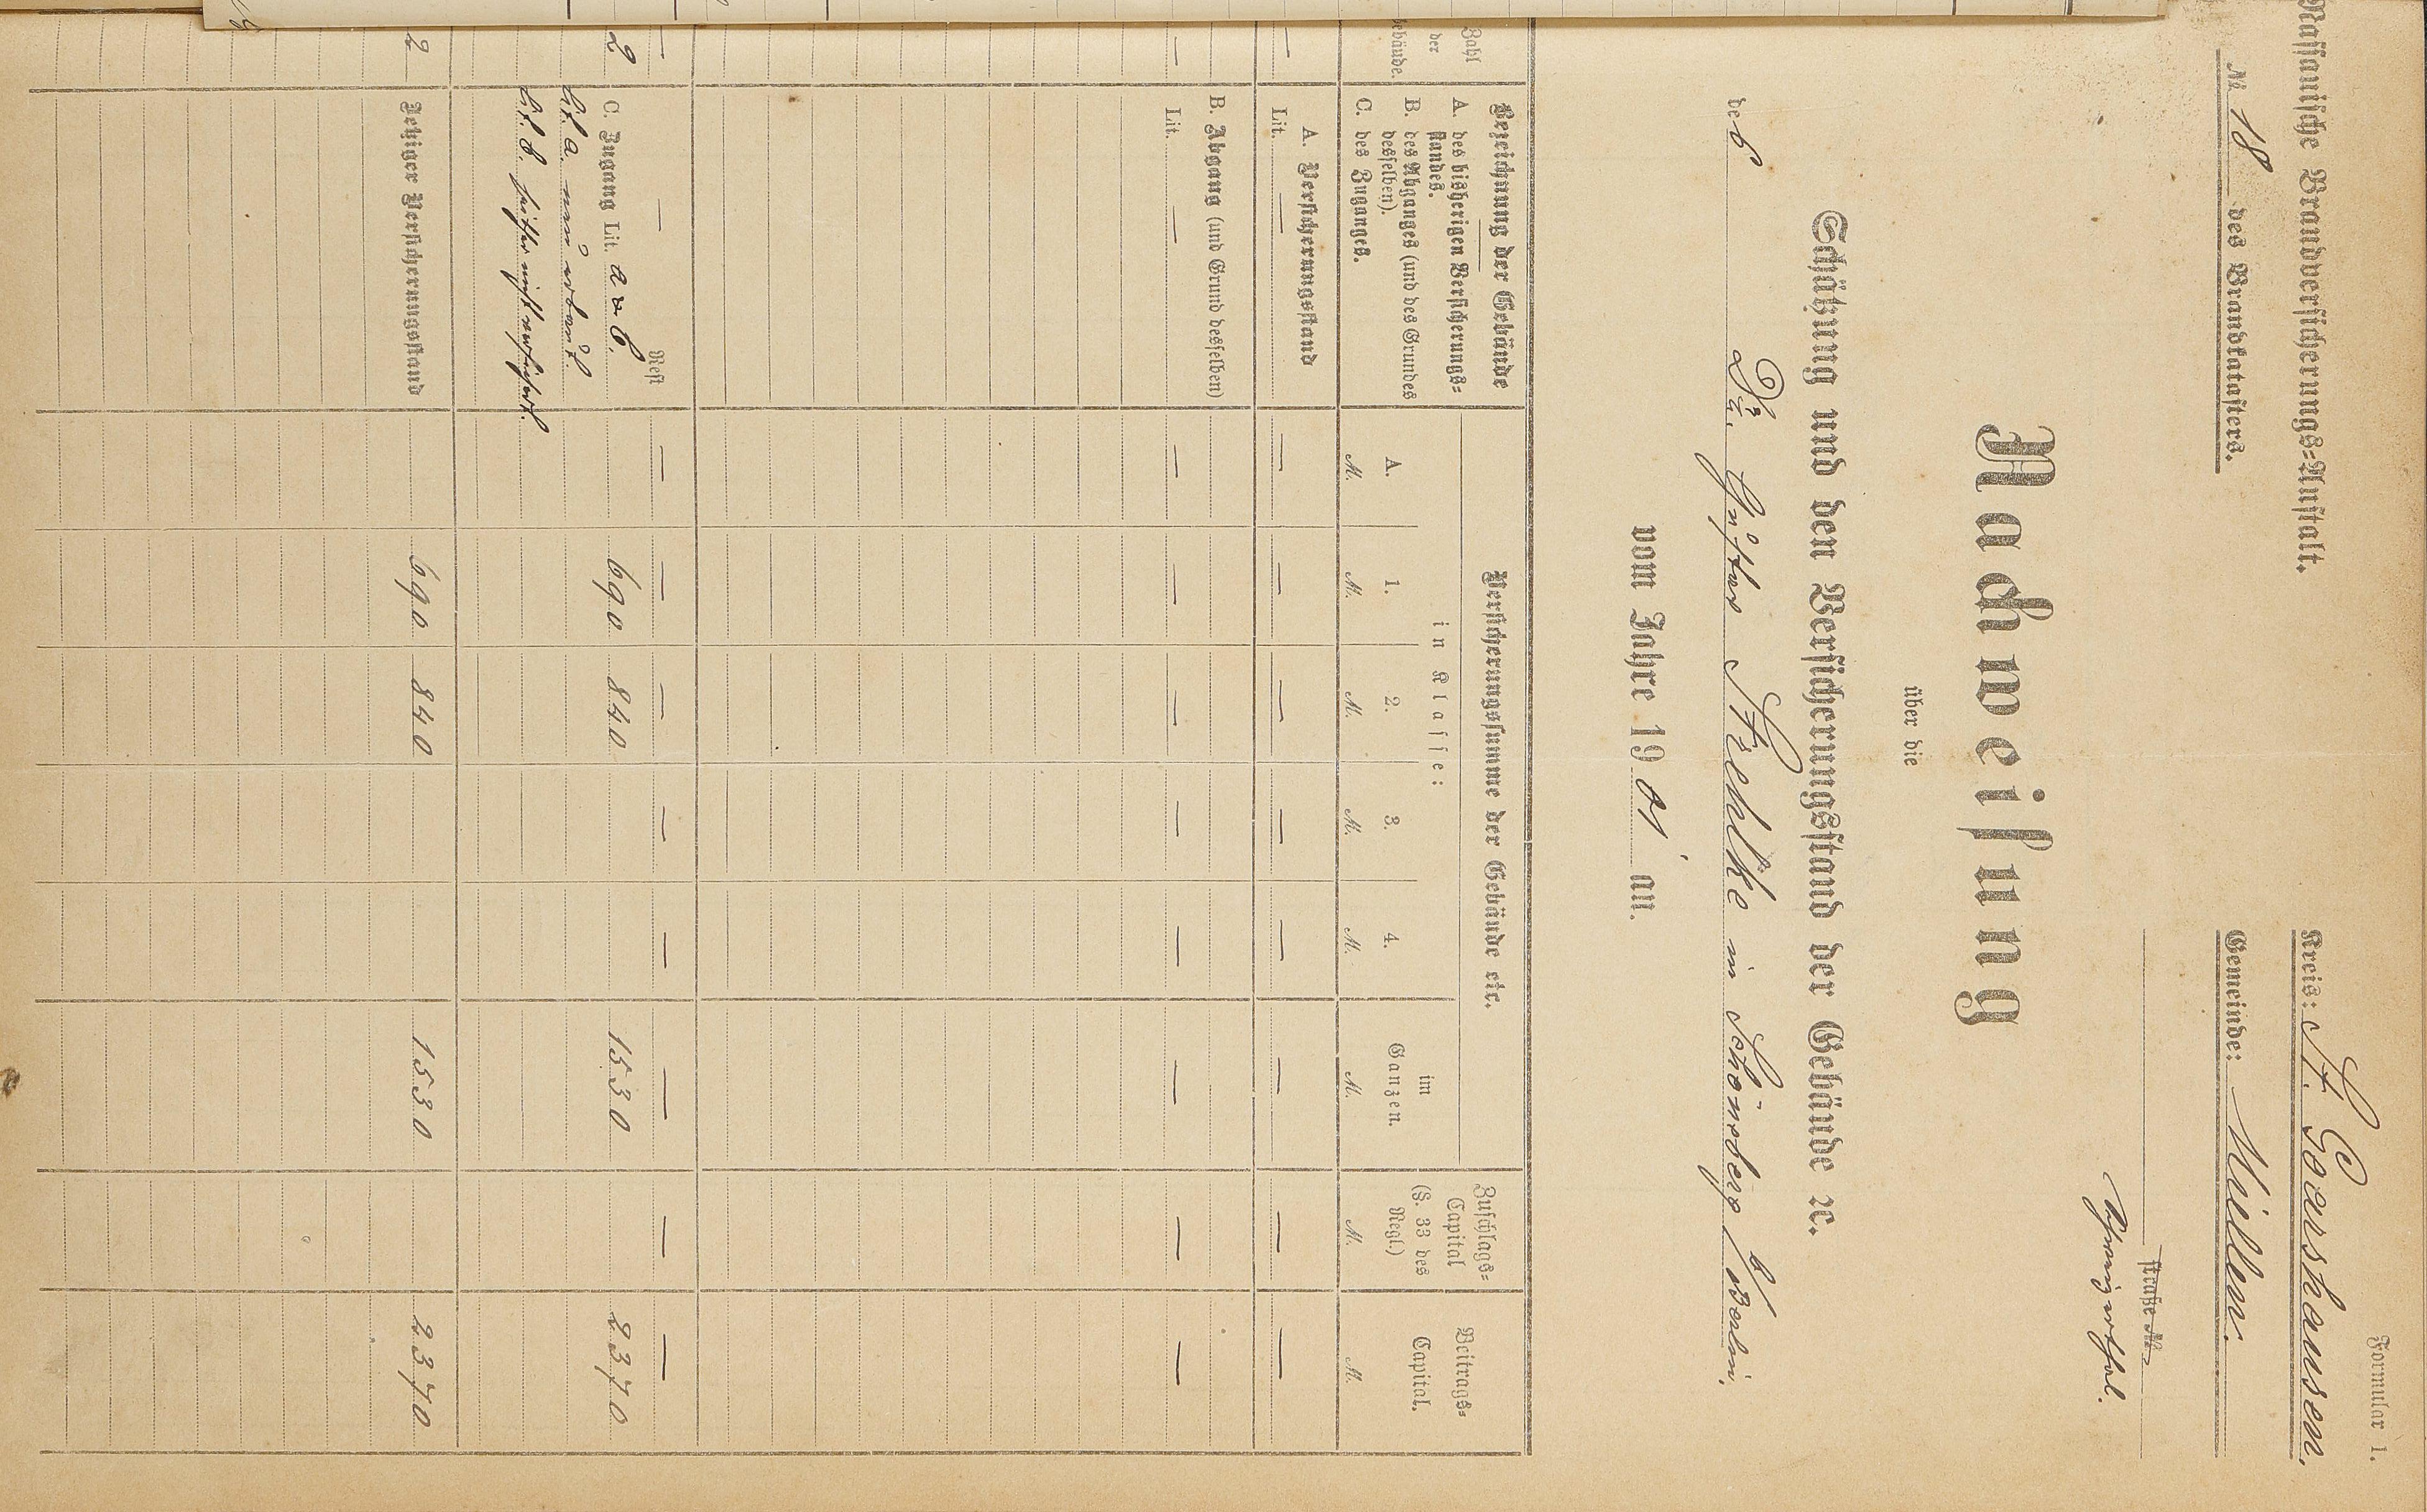 Formular 1.
Nassauische Brandversicherungs=Anstalt.
Kreis: St. Goarshausen.
№ 18 des Brandkatasters.
Gemeinde: Miellen.
straße №
Nachweisung
über die
Schätzung und den Versicherungsstand der Gebäude ꝛc.
des Dr. Gustav Strehlke in Schönberg b/Berlin,
vom Jahre 1901 an.
Zahl der Gebäude.
Bezeichnung der Gebäude
A. des bisherigen Versicherungs=
standes.
B. des Abganges (und des Grundes
desselben).
C. des Zuganges.
Versicherungssumme der Gebäude etc.
in Klasse:
A. 1. 2. 3. 4.
im Ganzen.
Zuschlags=
Capital
(§. 33 des
Regl.)
Beitrags=
Capital.
M. M. M. M. M. M. M. M.
A. Versicherungsstand
— Lit. — — — — — — — — —
B. Abgang (und Grund desselben)
— Lit. — — — — — — — — —
— — Rest — — — — — — — —
2 C. Zugang Lit. a u b. 690 840 1530 2370
Lit. a. neu erbaut.
Lit. b. seither nicht versichert.
2 Jetziger Versicherungsstand 690 840 1530 2370